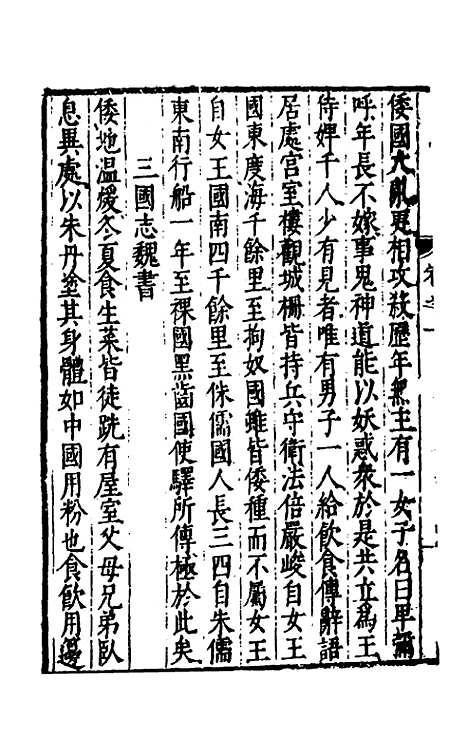 倭國大亂更相攻殺歷年無主有一女子名曰卑彌
呼年長不嫁事鬼神道能以妖惑衆於是共立爲王
侍婢千人少有見者唯有男子一人給飲食傳辭語
居處宮室樓觀城柵皆持兵守衛法倍嚴峻自女王
國東度海千餘里至拘奴國雖皆倭種而不屬女王
自女王國南四千餘里至侏儒國人長三四自朱儒
東南行船一年至裸國黑齒國使驛所傳極於此矣
三國志魏書
倭地温煖冬夏食生菜皆徒跣有屋室父母兄弟臥
息異處以朱丹塗其身體如中國用粉也食飲用籩